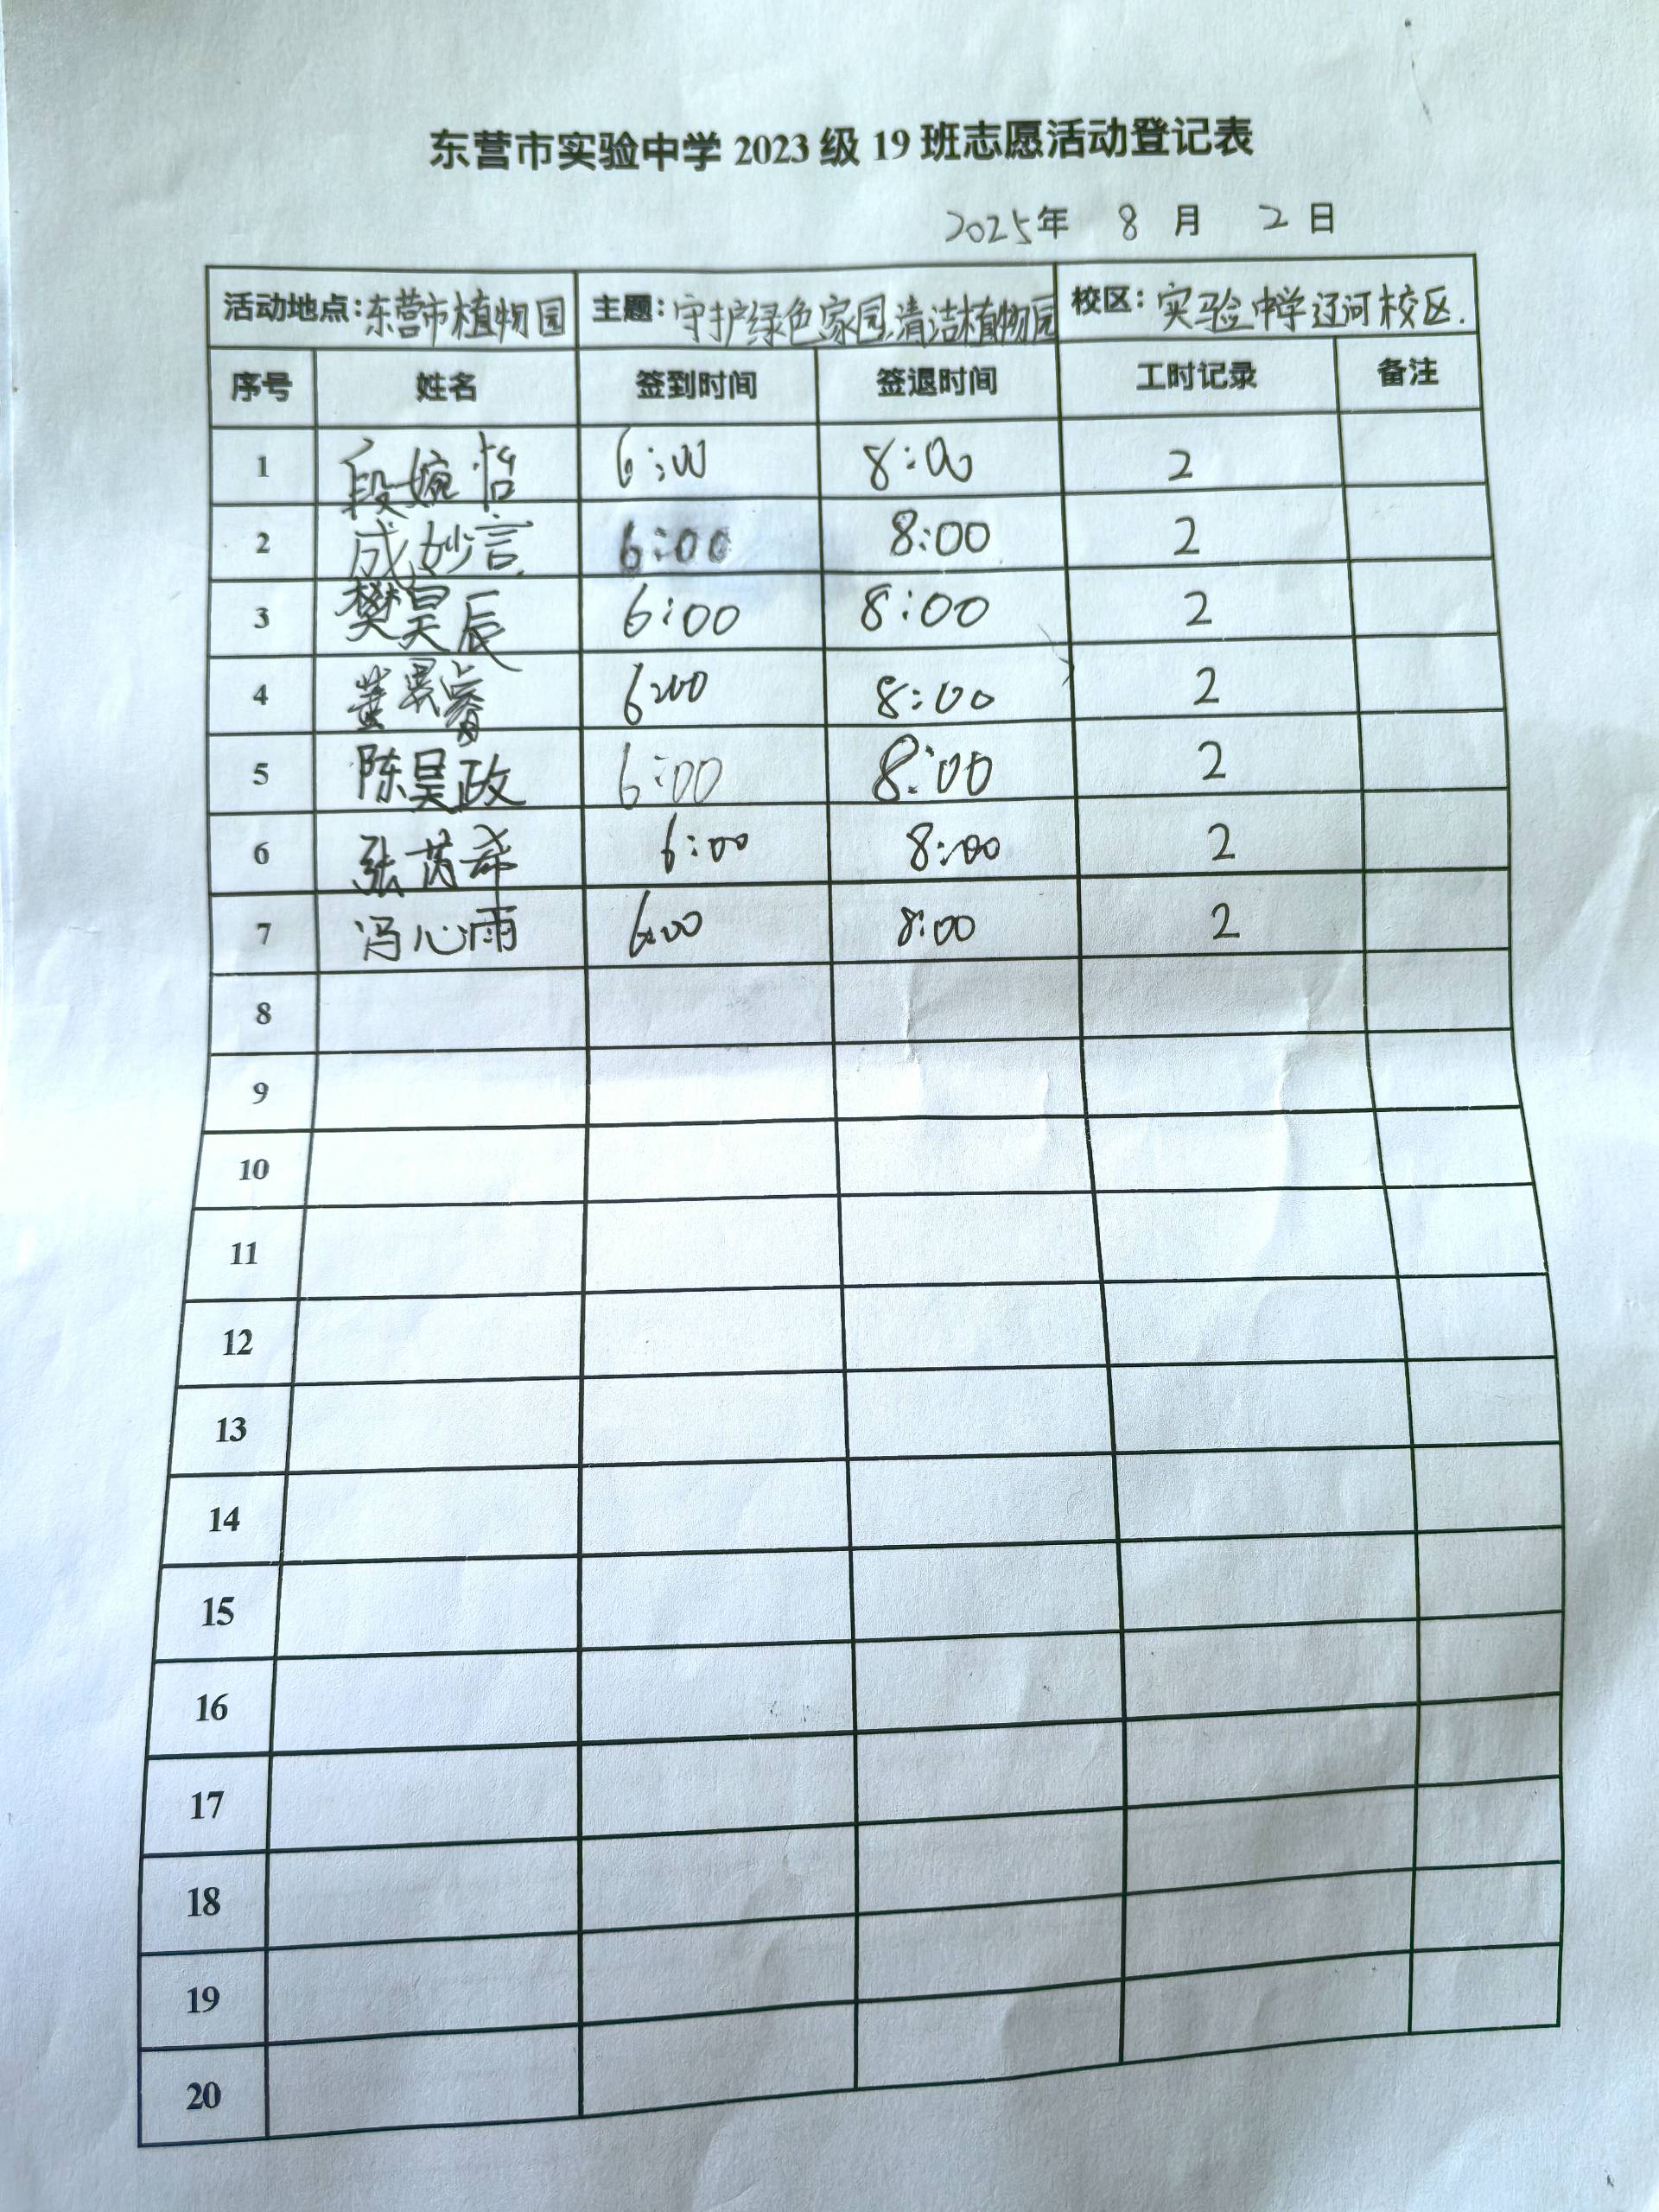 东营市实验中学 2023 级 19 班志愿活动登记表
2025年 8 月 2 日
活动地点:东营市植物园 主题:守护绿色家园,清洁植物园 校区:实验中学辽河校区.
序号 姓名 签到时间 签退时间 工时记录 备注
1 段婉怡 6:00 8:00 2
2 成妙言 6:00 8:00 2
3 樊昊辰 6:00 8:00 2
4 6:00 8:00 2
5 陈昊政 6:00 8:00 2
6 张芮希 6:00 8:00 2
7 冯心雨 6:00 8:00 2
8
9
10
11
12
13
14
15
16
17
18
19
20